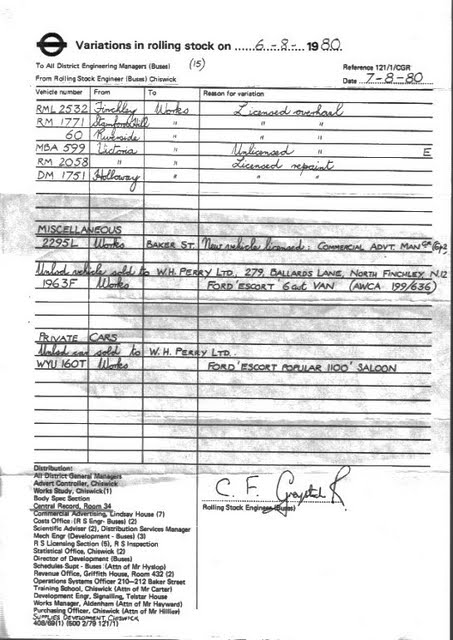 Variations in rolling stock on ..... 6-8- ... 1980.
To All District Engineering Managers (Buses) (15) Reference 121/1/CGR
From Rolling Stock Engineer (Buses) Chiswick Date 7-8-80
Vehicle number From To Reason for variation
RML 2532 Finchley Works Licensed overhaul
RM 1771 Stamford Hill " " "
60 Riverside " " "
MBA 599 Victoria " Unlicensed " E
RM 2058 " " Licensed repaint
DM 1751 Holloway " " "
MISCELLANEOUS
2295L Works BAKER ST. New vehicle licensed: COMMERCIAL ADVT. MAN
Unlsd vehicle sold to W.H. PERRY LTD., 279, BALLARDS LANE, NORTH FINCHLEY, N.12
1963F Works FORD 'ESCORT' 6 cwt VAN (AWCA 199/636)
PRIVATE CARS
Unlsd car sold to W.H. PERRY LTD.
WYU 160T Works FORD 'ESCORT POPULAR 1100' SALOON
Distribution:
All District General Managers
Advert Controller, Chiswick
Works Study, Chiswick (1)
Body Spec Section
Central Record, Room 34
Commercial Advertising, Lindsay House (7)
Costs Office (R S Engr- Buses) (2)
Scientific Adviser (2), Distribution Services Manager
Mech Engr (Development - Buses) (3)
R S Licensing Section (5), R S Inspection
Statistical Office, Chiswick (2)
Director of Development (Buses)
Schedules Supt - Buses (Attn of Mr Hyslop)
Revenue Office, Griffith House, Room 432 (2)
Operations Systems Officer 210-212 Baker Street
Training School, Chiswick (Attn of Mr Carter)
Development Engr, Signalling, Telstar House
Works Manager, Aldenham (Attn of Mr Hayward)
Purchasing Officer, Chiswick (Attn of Mr Hillier)
SUPPLIES DEVELOPMENT, CHISWICK
406/69(1) (500 2/79 121/1)
C. F.
Rolling Stock Engineer (Buses)